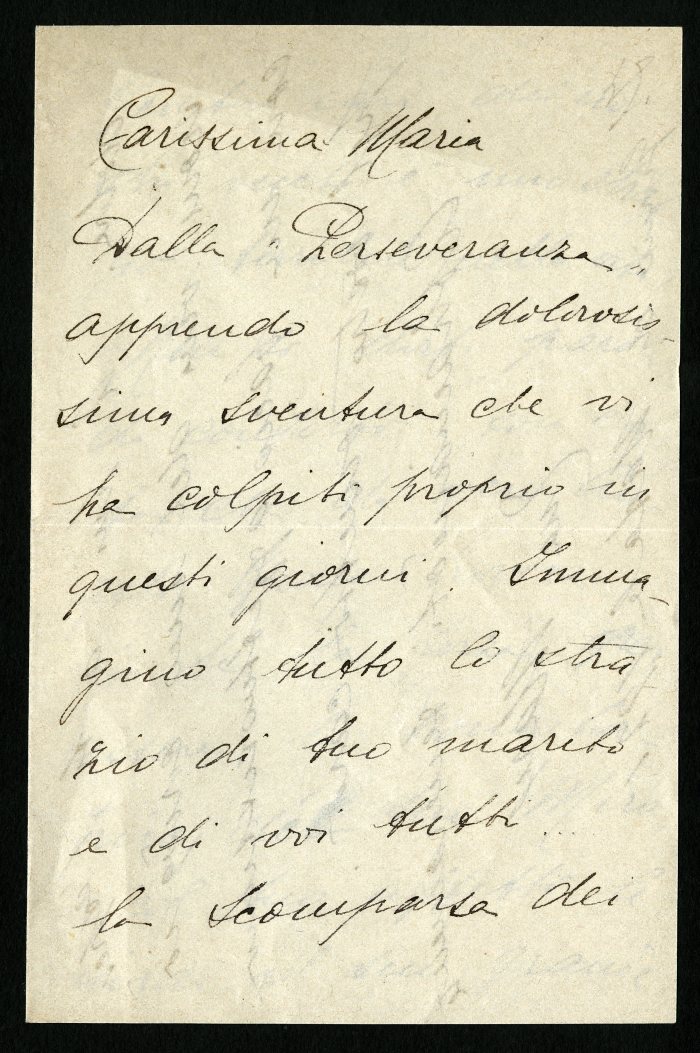 Carissima Maria
Dalla "Perseveranza"
apprendo la dolorosis-
sima sventura che vi
ha colpiti proprio in
questi giorni. Imma-
gino tutto lo stra-
zio di tuo marito
e di voi tutti...
la scomparsa dei